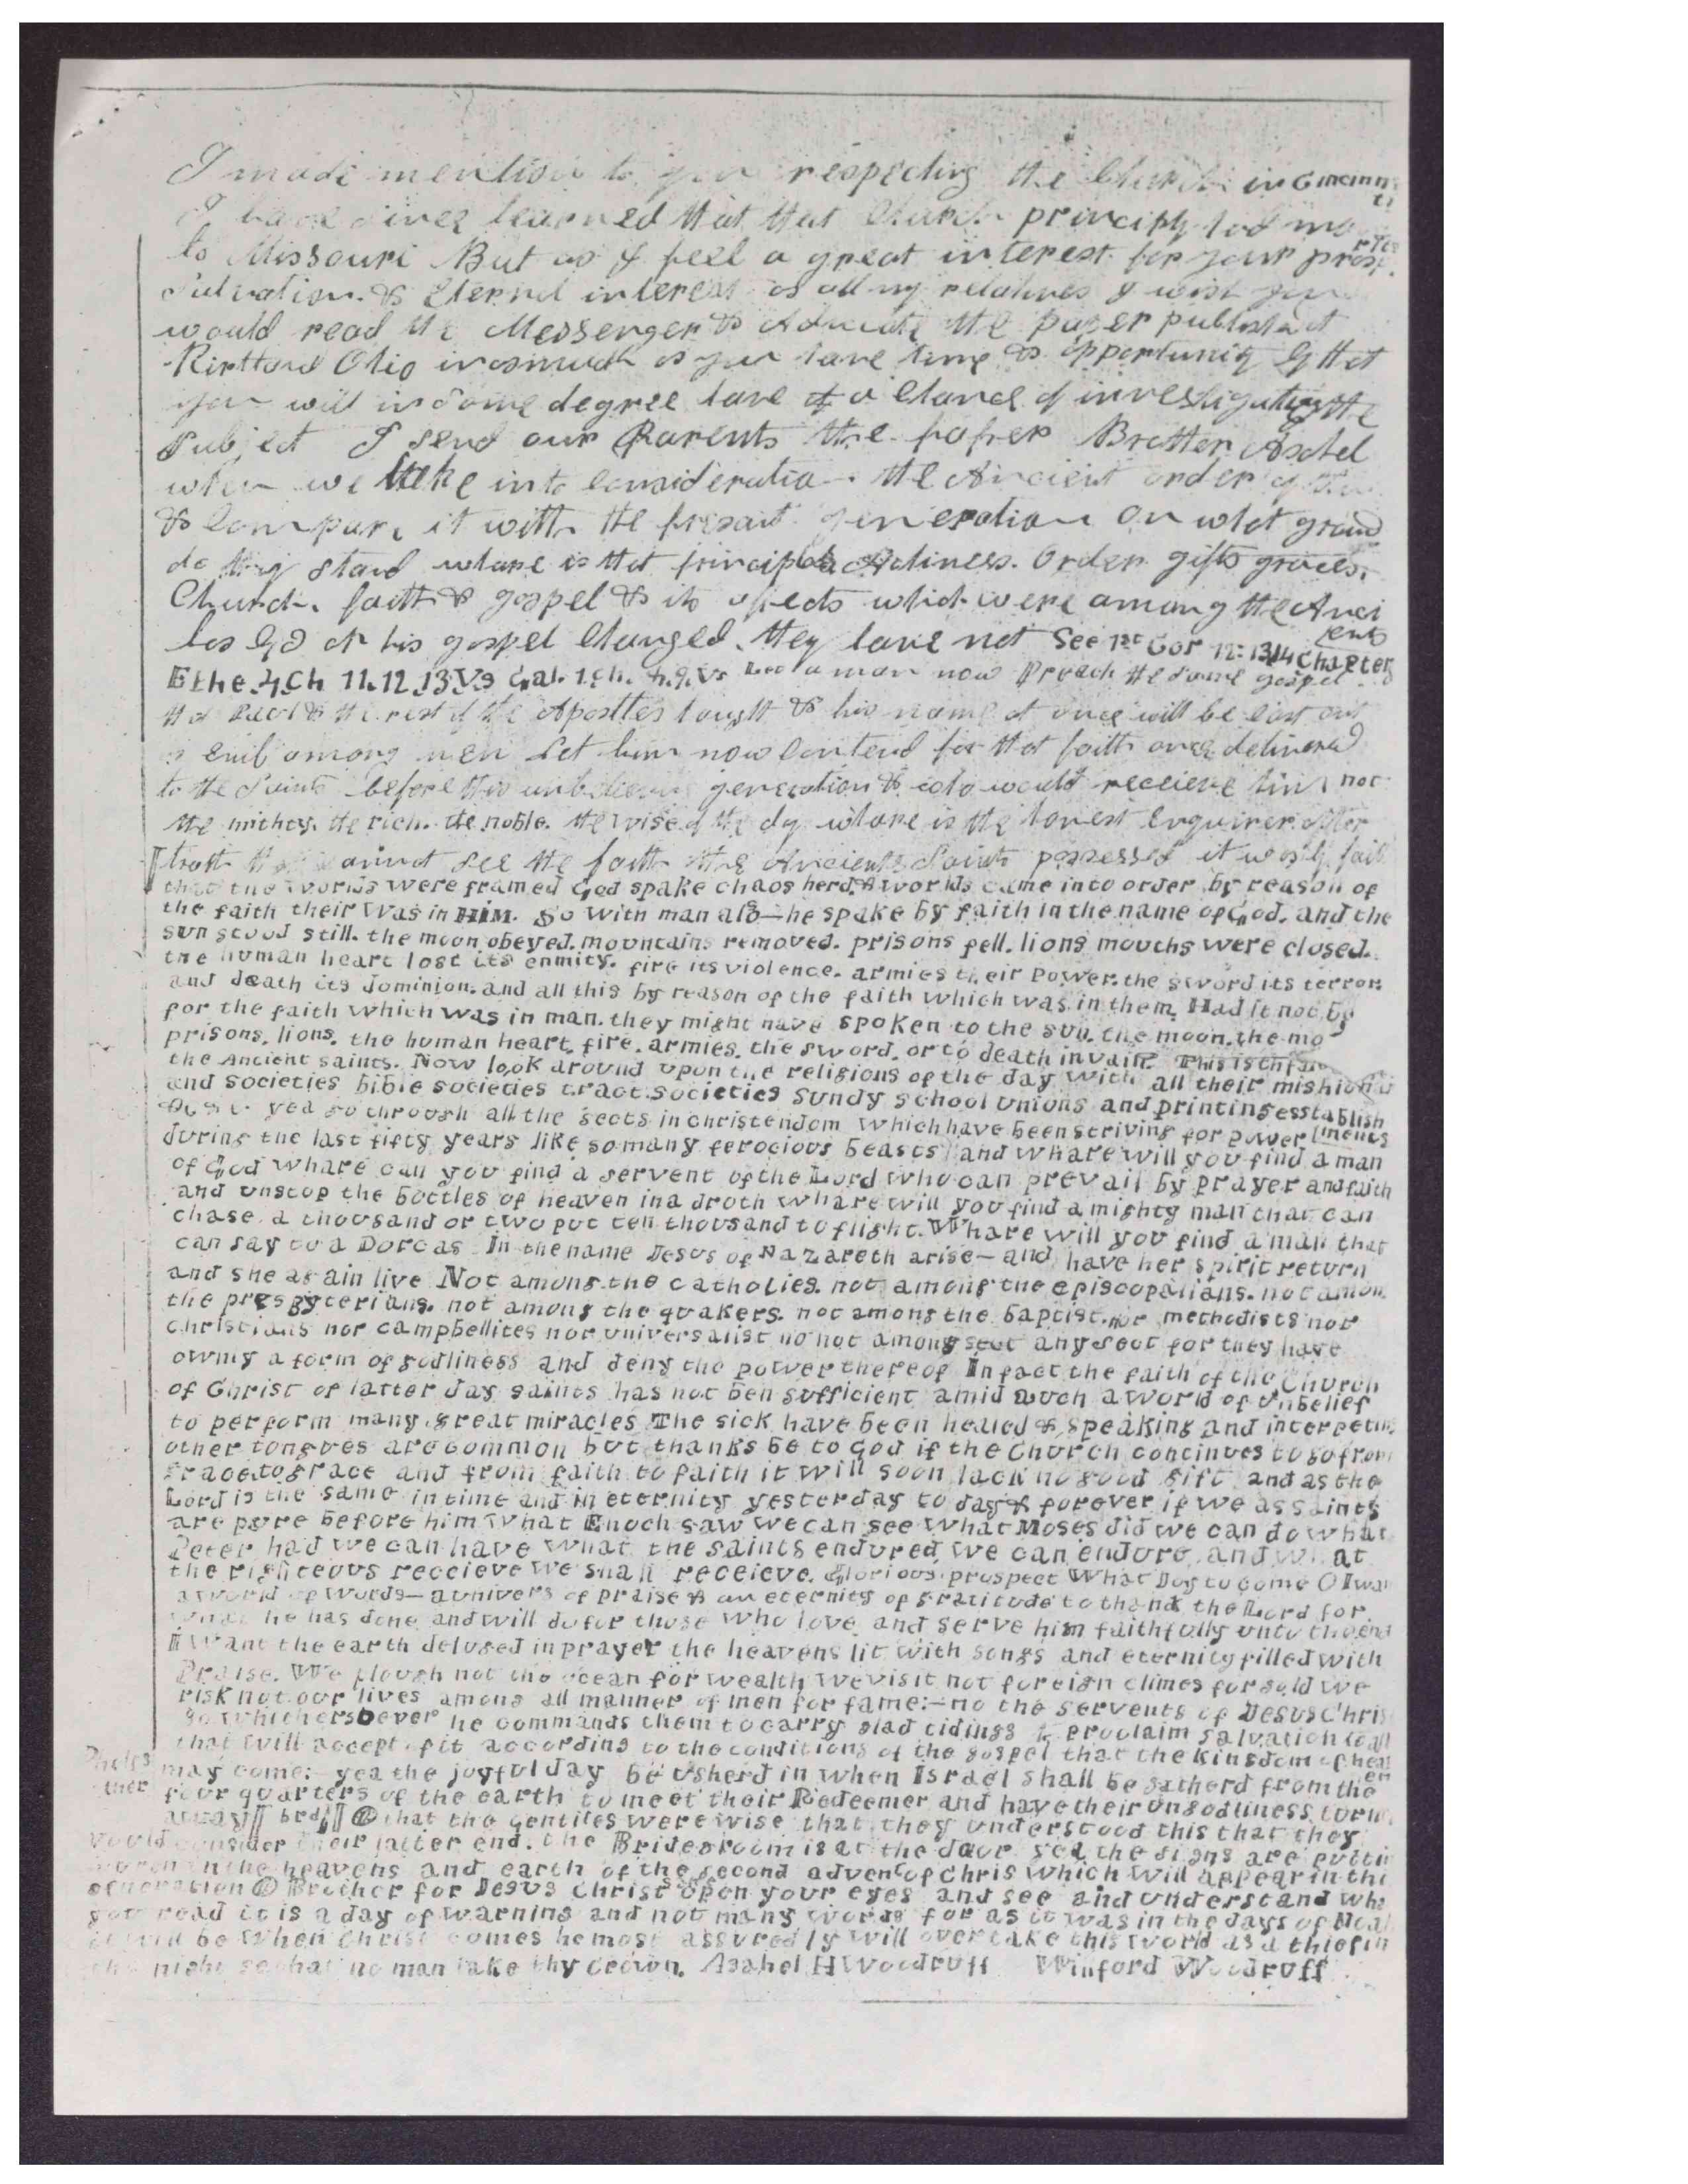 I made mention to you respecting the Church in Cincinn
ti
I have since learned that that Church principly had mo
to Missouri But as I feel a great interest for your prosp
erte
salvation. & Eternal interest as all my relatives I wish you
would read the Messenger & Advocate the paper publishd at
Kirtland Ohio inasmuch as you have time & opportunity by that
you will in some degree have a chance of investigating the
subject I send our Parents the paper Brother Asahel
when we take into consideration the Ancient order of
& compare it with the present generation on what ground
do they stand whare is that principle holiness. Order gifts graces.
Church. faith & gospel & its effects which were among the Anci
ents
has God or his gospel changed. they have not See 1st Cor 12: 13 14 Chapter
Ethe. 4. Ch 11. 12. 13 Vs Gal. 1. Ch. 8. 9. Vs Let a man now Preach the same gospel
that Paul & the rest of the Apostles taught & his name at once will be cast out
as evil among men Let him now contend for that faith once delivered
to the Saints before this unbelieving generation & who would receieve him not
the mithey. the rich. the noble. the wise of the day whare is the honest enquirer after
truth that cannot see the faith the Ancients Saints possessed it was by faith
that the worlds were framed God spake chaos herd. & worlds came into order by reason of
the faith their was in HIM. So with man also—he spake by faith in the name of God. and the
sun stood still. the moon obeyed. mountains removed. prisons fell. lions mouths were closed.
the human heart lost its enmity. fire its violence. armies their power. the sword its terror
and death its dominion. and all this by reason of the faith which was in them. Had it not be
for the faith which was in man. they might have spoken to the sun. the moon. the mo
prisons. lions. the human heart. fire. armies. the sword. or to death in vain. This is the
the Ancient saints. Now look around upon the religions of the day with all their mishion
and societies bible societies tract societies Sundy school unions and printing esstablish
ments
yea go through all the sects in christendom which have been striving for power
during the last fifty years like so many ferocious beasts and whare will you find a man
of God whare can you find a servent of the Lord who can prevail by prayer and faith
and unstop the bottles of heaven in a droth whare will you find a mighty man that can
chase a thousand or two put ten thousand to flight. Whare will you find a man that
can say to a Dorcas In the name Jesus of Nazareth arise— and have her spirit return
and she again live Not among the catholics. not among the episcopalians. not amon
the presbyterians. not among the quakers. not among the baptist. nor methodists nor
christians nor campbellites nor universalist no not among sect any sect for they have
owny a form of godliness and deny the power thereof In fact the faith of the Church
of Christ of latter day saints has not ben sufficient amid such a world of unbelief
to perform many great miracles The sick have been healed & speaking and interpetin
other tongues are common but thanks be to God if the Church continues to go from
grace to grace and from faith to faith it will soon lack no good gift and as the
Lord is the same in time and in eternity yesterday to day & forever if we as saints
are pure before him what Enoch saw we can see what Moses did we can do what
Peter had we can have what the saints endured we can endure and what
the righteous reccieve we shall receieve. Glorious prospect What Joy to come O I wa
a world of words— a univers of praise & an eternity of gratitude to thank the Lord for
what he has done and will do for those who love and serve him faithfully unto the end
I want the earth deluged in prayer the heavens lit with songs and eternity filled with
Praise. We plough not the ocean for wealth we visit not foreign climes for gold we
risk not our lives among all manner of men for fame:— no the servents of Jesus Chris
go whithersoever he commands them to carry glad tidings & proclaim salvation to all
that will accept of it according to the conditions of the gospel that the kingdom of heav
en
may come:— yea the joyful day be usherd in when Israel shall be gatherd from the
four quarters of the earth to meet their Redeemer and have their ungodliness turn
away O that the gentiles were wise that they understood this that they
would consider their latter end. the Bridegroom is at the door yea the signs are
in the heavens and earth of the second advent of Chris which will appear in thi
generation O Brother for Jesus Christ's open your eyes and see and understand wha
you read it is a day of warning and not many words for as it was in the days of Noah
it will be when Christ comes he most assuredly will overtake this world as a thief in
the night so that no man take thy crown. Asahel H Woodruff Wilford Woodruff